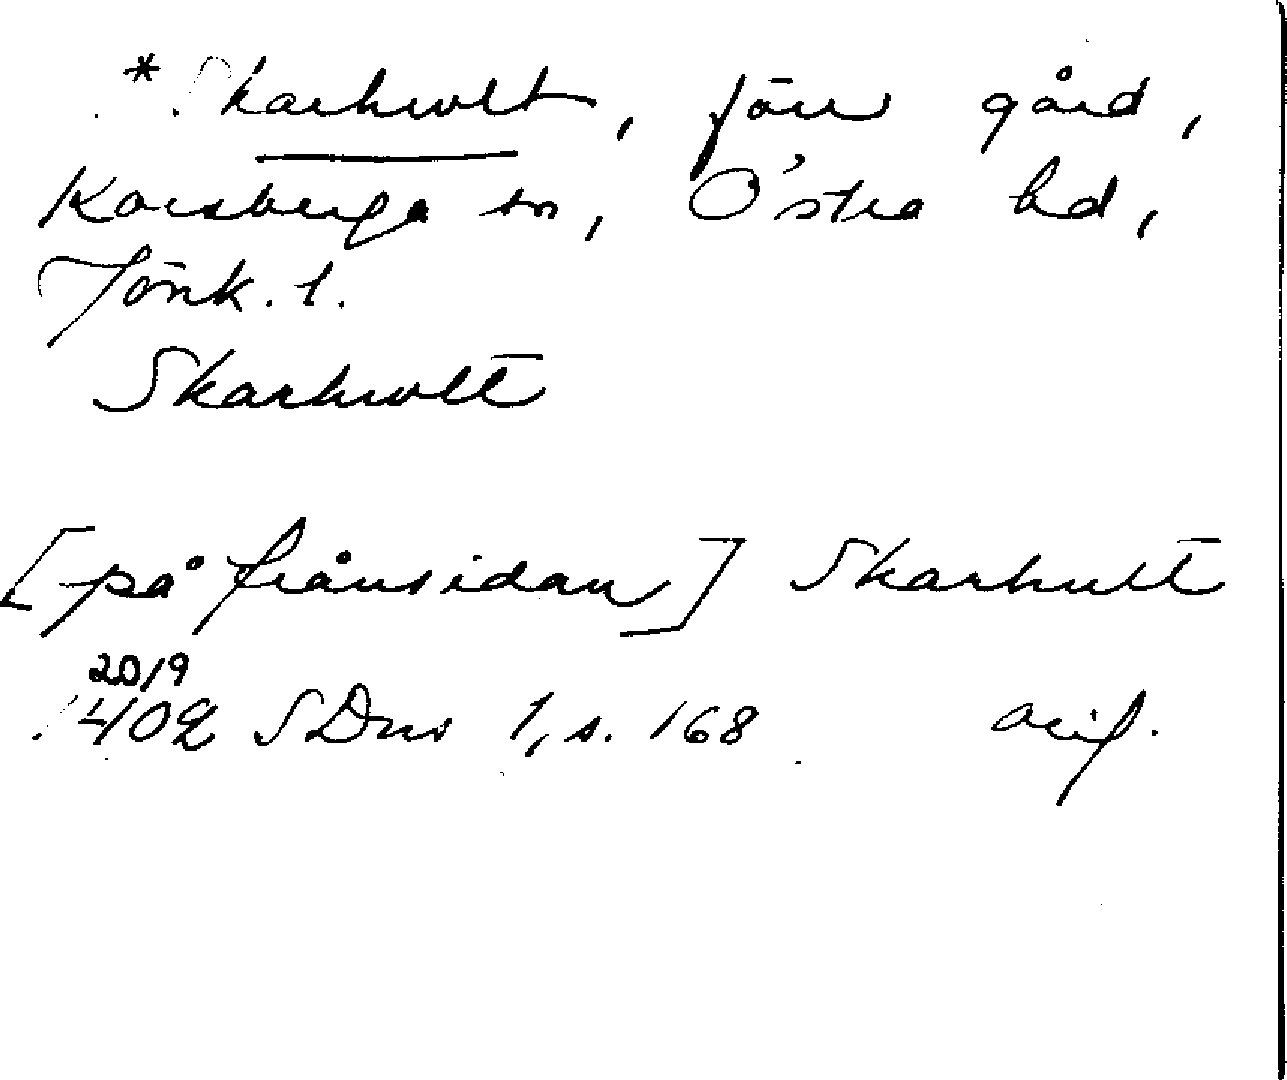 *Skarhult, förr gård,
Korsberga sn, Östra hd,
Jönk. l.
Skarhwlt
[på frånsidan] Skarhult
20/9
1402 SDns 1, s. 168 orig.